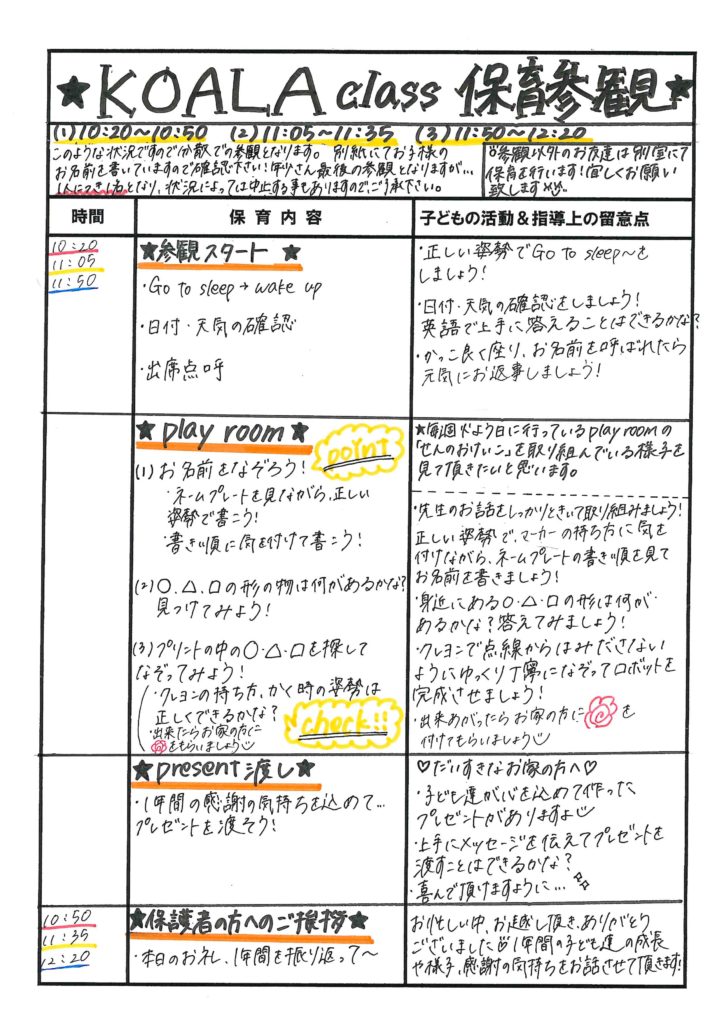 ★KOALA class 保育参観★
(1) 10:20〜10:50 (2) 11:05〜11:35 (3) 11:50〜12:20
このような状況ですので分散での参観となります。別紙にてお子様の
お名前を書いていますのでご確認下さい!年少さん最後の参観となりますが…
1人につき1名となり、状況によっては中止する事もありますのでご了承下さい。
参観以外のお友達は別室にて
保育を行います!宜しくお願い
致します
時間 保育内容 子どもの活動&指導上の留意点
10:20
11:05
11:50
★参観スタート ★
・Go to sleep → wake up
・日付・天気の確認
・出席点呼
・正しい姿勢でGo to sleep〜を
しましょう!
・日付・天気の確認をしましょう!
英語で上手に答えることはできるかな?
・かっこ良く座り、お名前を呼ばれたら
元気にお返事しましょう!
★play room★
point
(1) お名前をなぞろう!
・ネームプレートを見ながら、正しい
姿勢で書こう!
・書き順に気を付けて書こう!
(2) ○、△、□の形の物は何があるかな?
見つけてみよう!
(3) プリントの中の○・△・□を探して
なぞってみよう!
・クレヨンの持ち方、かく時の姿勢は
正しくできるかな?
・出来たらお家の方に
をもらいましょう
check!!
★毎週火よう日に行っているplay roomの
「せんのおけいこ」を取り組んでいる様子を
見て頂きたいと思います。
・先生のお話をしっかりときいて取り組みましょう!
正しい姿勢で、マーカーの持ち方に気を
付けながら、ネームプレートの書き順を見て
お名前を書きましょう!
・身近にある○・△・□の形は何が
あるかな?答えてみましょう!
・クレヨンで点線からはみださない
ようにゆっくり丁寧になぞってロボットを
完成させましょう!
・出来あがったらお家の方に を
付けてもらいましょう
★present渡し★
・1年間の感謝の気持ちを込めて…
プレゼントを渡そう!
♡だいすきなお家の方へ♡
・子ども達が心を込めて作った
プレゼントがありますよ
・上手にメッセージを伝えてプレゼントを
渡すことはできるかな?
・喜んで頂けますように…
10:50
11:35
12:20
★保護者の方へのご挨拶★
・本日のお礼、1年間を振り返って〜
お忙しい中、お越し頂き、ありがとう
ございました 1年間の子ども達の成長
や様子、感謝の気持ちをお話させて頂きます!